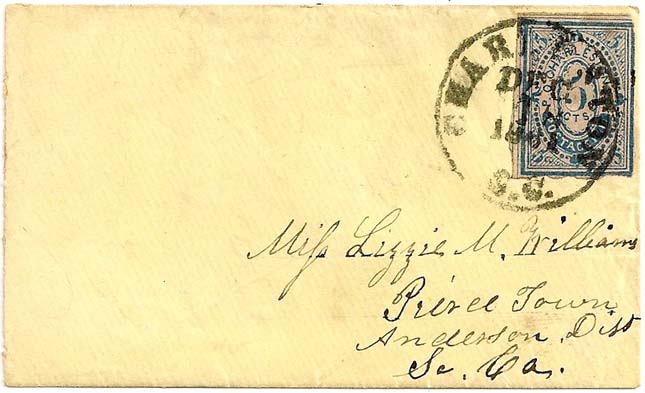 CHARLESTON
DEC
1861
S.C.
5
CTS
POSTAGE
Miss Lizzie M. Williams
Pierce Town
Anderson Dist
So. Ca.